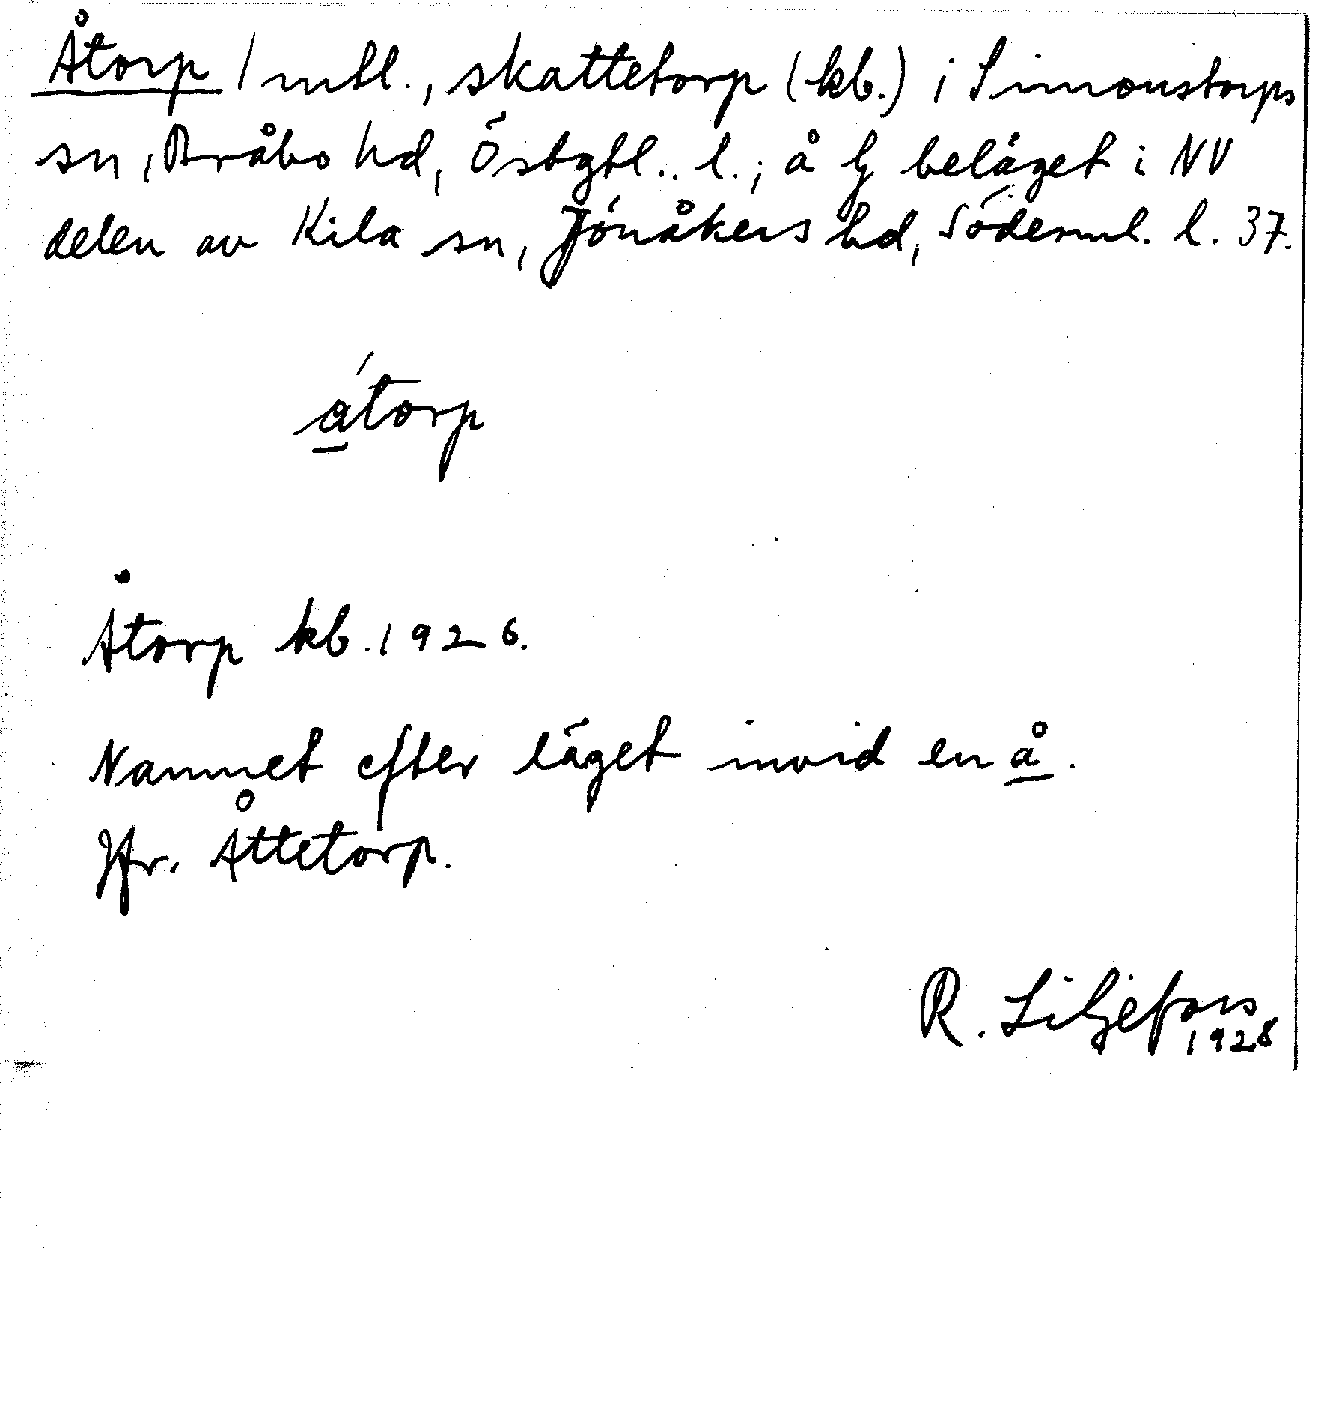 Åtorp 1 mtl., skattetorp (kb.) i Simonstorps
sn, Bråbo hd, Östgtl.. l.; å G beläget i NV
delen av Kila sn, Jönåkers hd, Söderml. l. 37.
átorp
Åtorp kb. 1926.
Namnet efter läget invid en å.
Jfr. Åttetorp.
R. Liljefors
1928